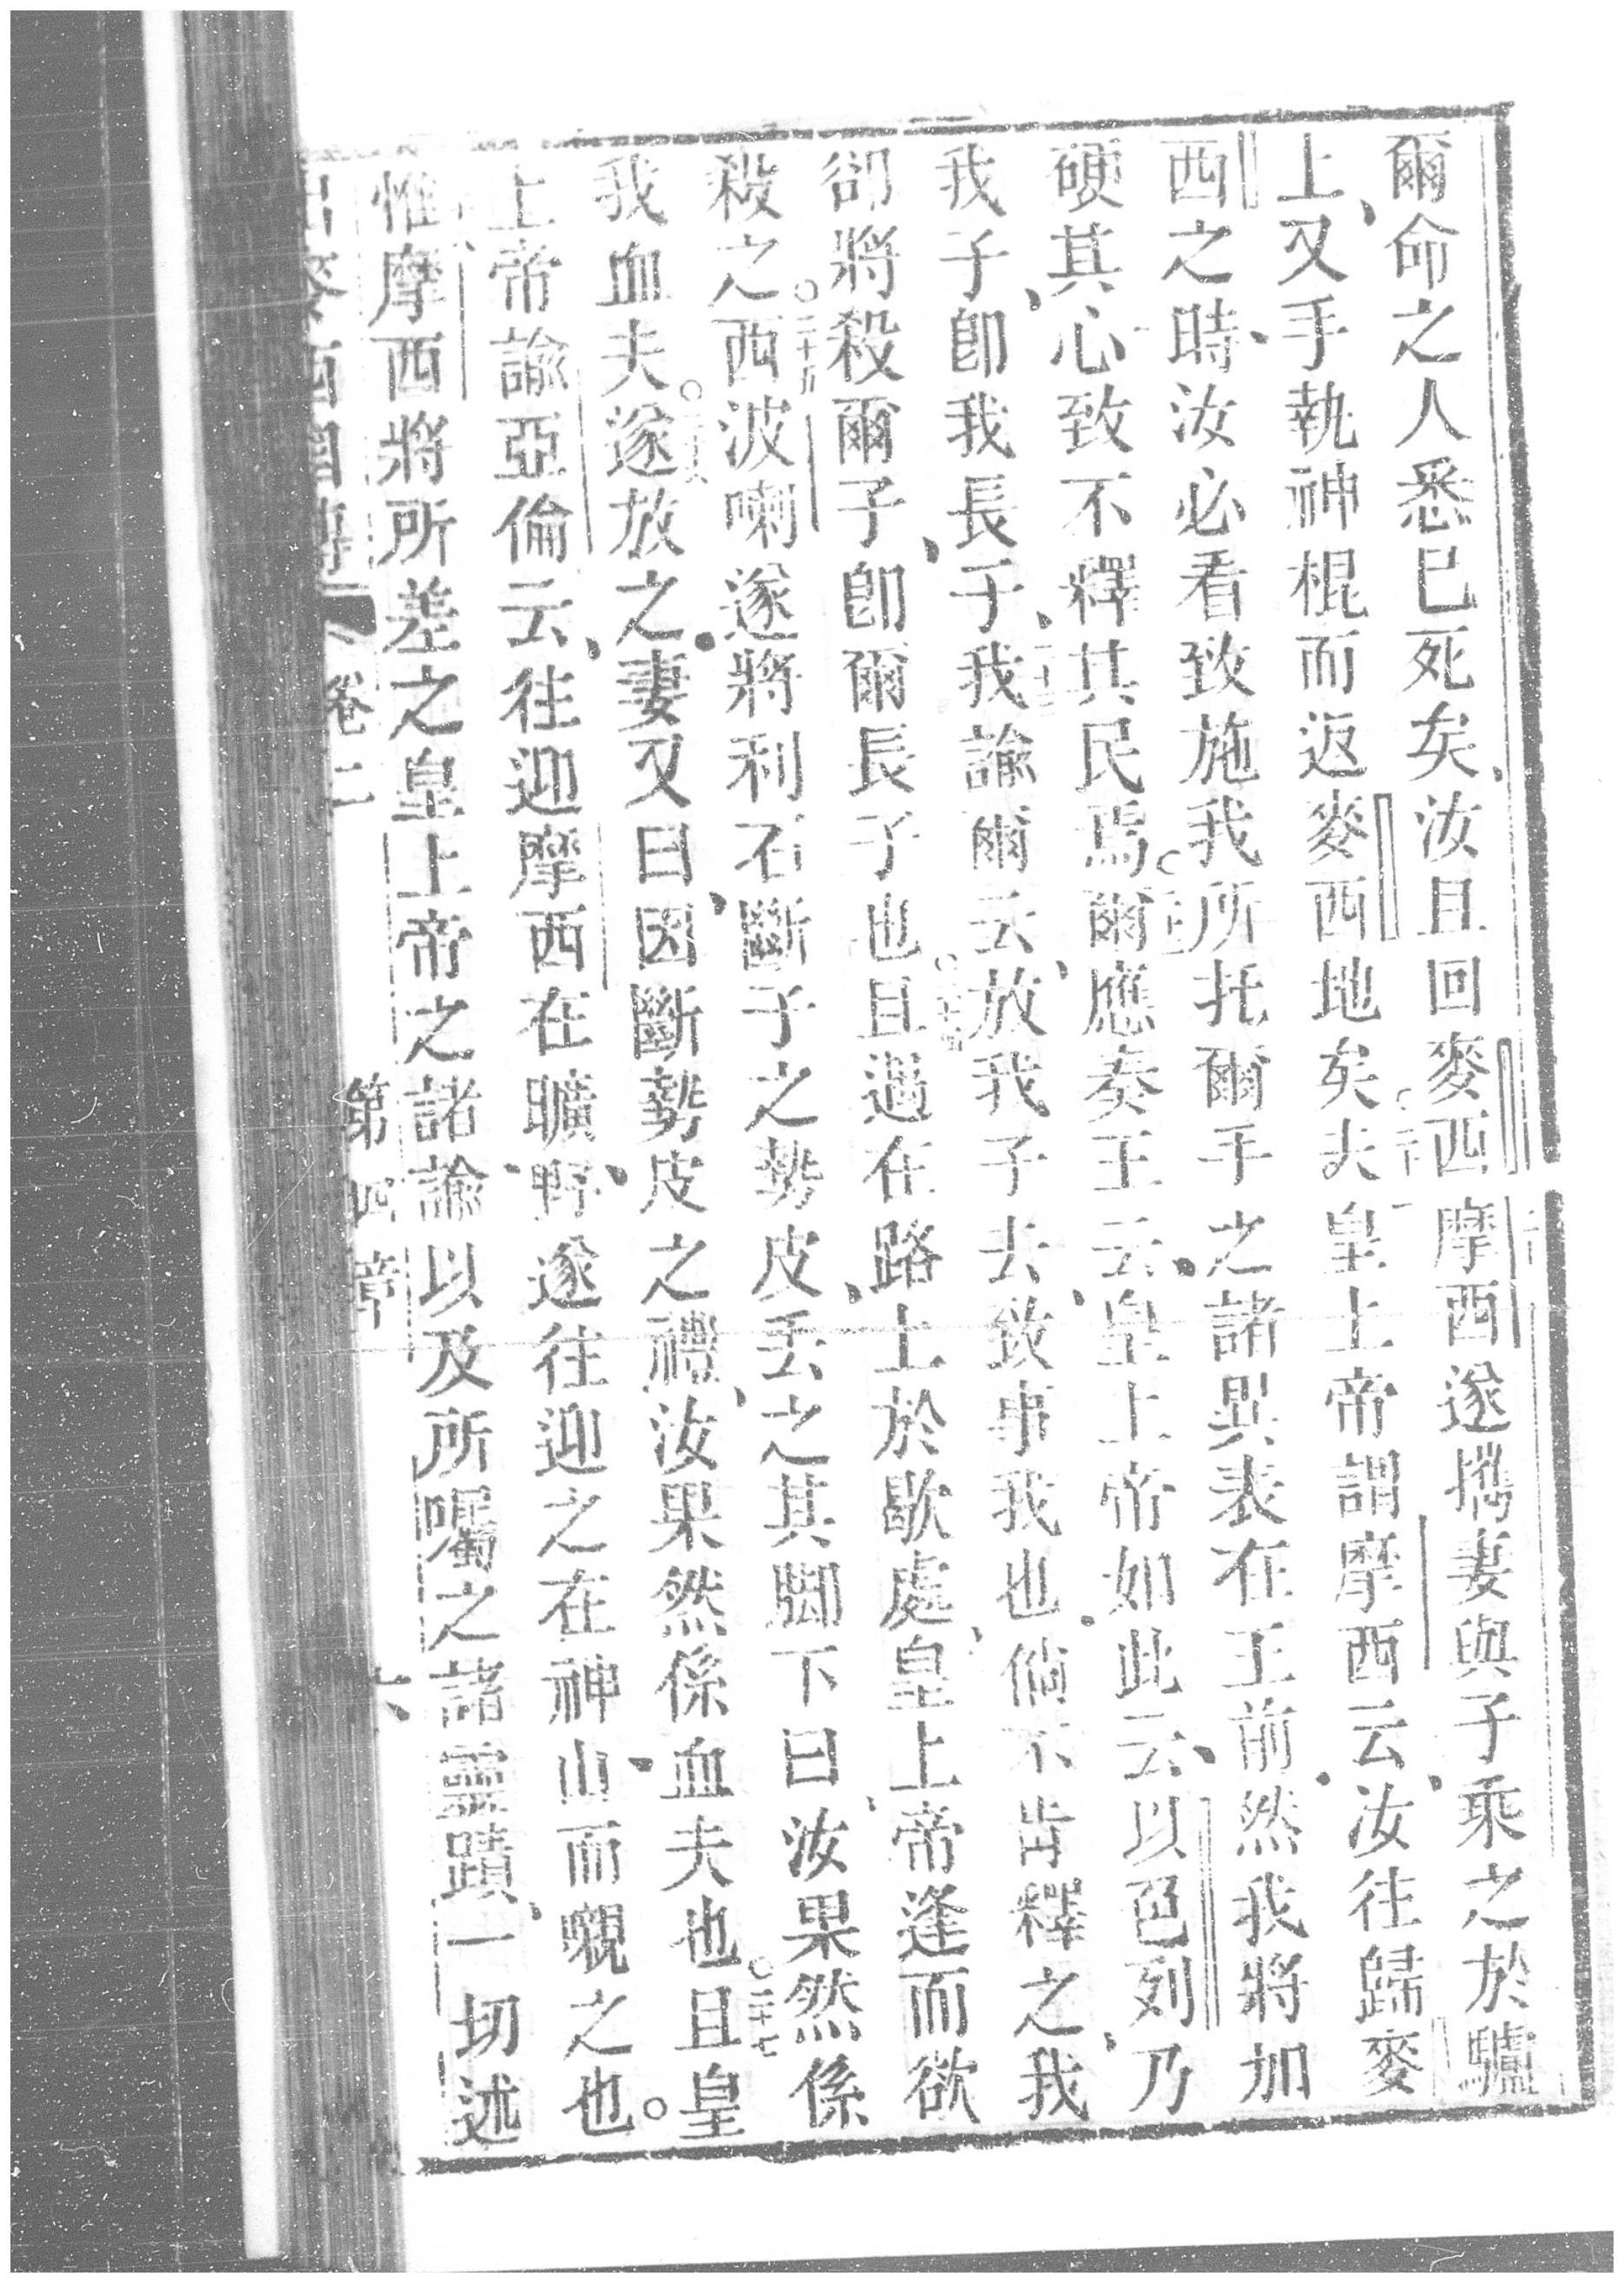 爾命之人悉已死矣、汝且回麥西摩西遂攜妻與子乘之於驢
上、又手執神棍而返麥西地矣夫皇上帝謂摩西云、汝往歸麥
西之時、汝必看致施我所托爾手之諸異表在王前、然我將加
硬其心致不釋其民焉○爾應奏王云、皇上帝如此云、以色列乃
我子、卽我長子、我諭爾云、放我子去、致事我也、倘不肯釋之、我
卻將殺爾子、卽爾長子也○且遇在路上於歇處、皇上帝逢而欲
殺之○二十五西波喇遂將利石斷子之勢皮、丟之其脚下曰、汝果然係
我血夫○遂放之、妻又曰、因斷勢皮之禮、汝果然係血夫也○二十七且皇
上帝諭亞倫云、往迎摩西在曠野、遂往迎之在神山、而嚫之也。
惟摩西將所差之皇上帝之諸諭以及所囑之諸靈蹟、一切述
卷二 第四章 六